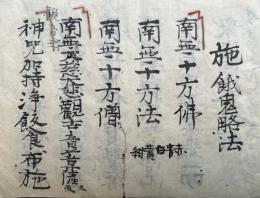 施餓鬼略法
南無十方佛
南無十方法
赤青白黄紺
南無十方僧
南無大慈悲觀世音菩薩
神咒加持淨飲食布施